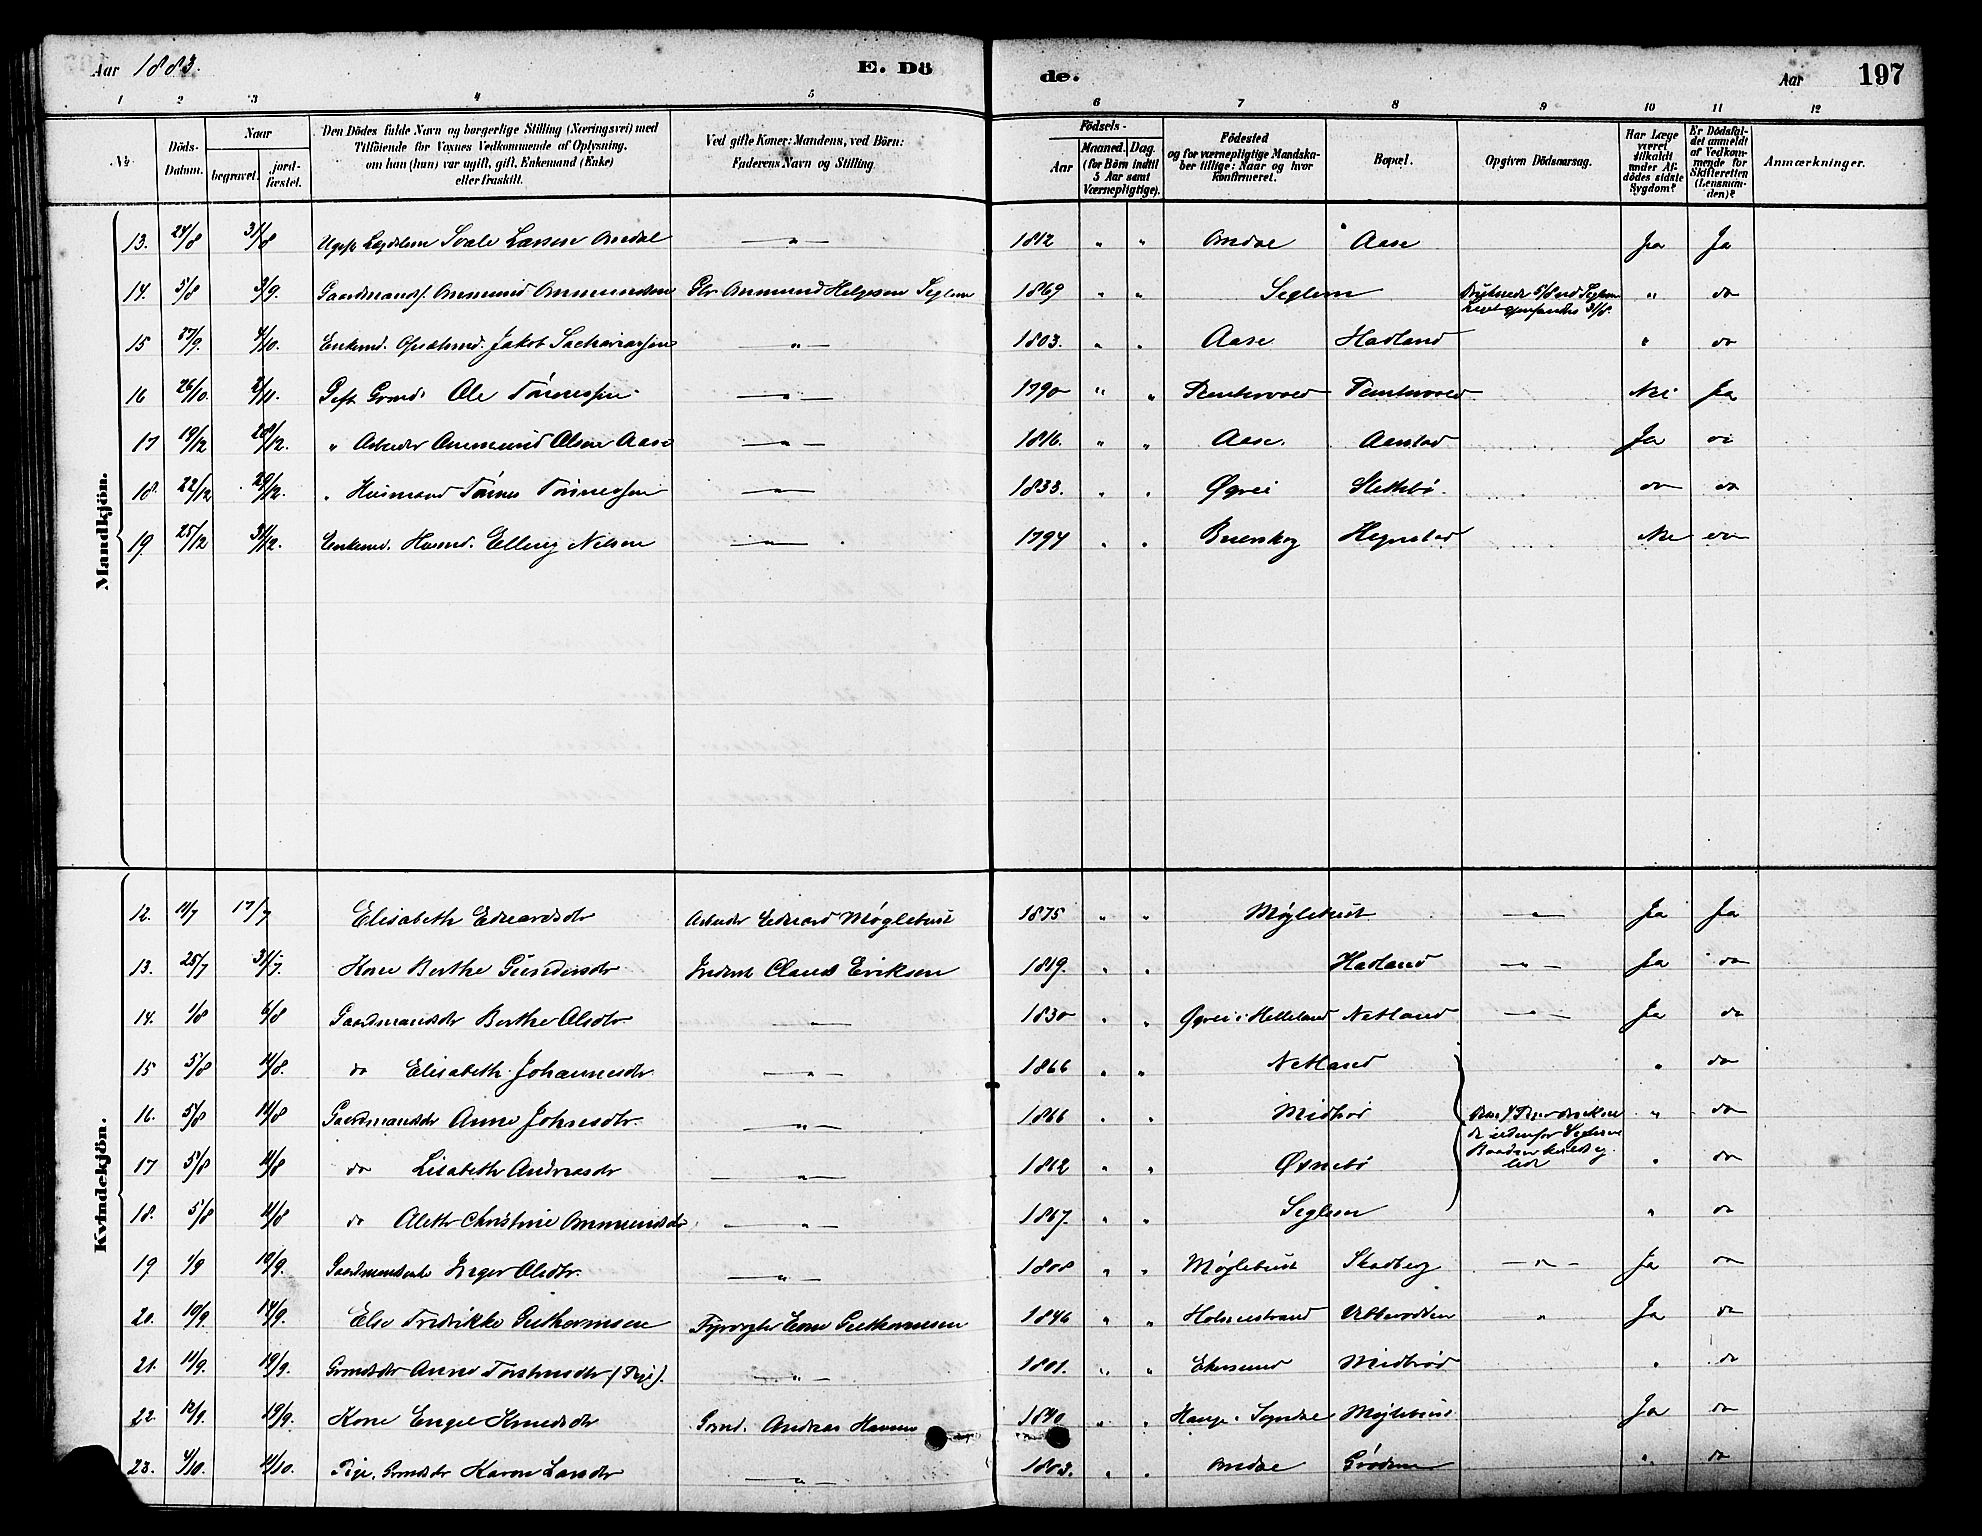 Aar 1883. E. Dö de. Aar 197
1 2 3 4 5 6 7 8 9 10 11 12
No. Döds-Datum. Naar begravet. jordfæstet. Den Dödes fulde Navn og borgerlige Stilling (Næringsvei) med Tilföiende for Voxnes Vedkommende af Oplysning, om han (hun) var ugift, gift, Enkemand (Enke) eller fraskilt. Ved gifte Koner: Mandens, ved Börn: Faderens Navn og Stilling. Födsels- Aar Maaned. Dag. (for Börn indtil 5 Aar samt Værnepligtige). Födested og for værnepligtige Mandskaber tillige: Naar og hvor konfirmeret. Bopæl. Opgiven Dödsaarsag. Har Læge været tilkaldt under Afdödes sidste Sygdom? Er Dödsfaldet anmeldt af Vedkommende for Skifteretten (Lensmanden)? Anmærkninger.
Mandkjön.
13. 24/8 31/8 Svale Larsen Omdal — " — 1812 " " Omdal Aase Ja Ja
14. 5/8 3/9. Gaardmands. Ommund Ommundsen Gbr Ommund Helgesen Seglem 1869 " " Seglem Druknede 5/8 ved Seglem 31/8. " do
15 27/9. 4/10. Enkemd. Jakob Sachariassen — " — 1803. " " Aase Hadland " do
16 26/10. 2/11. Gift Grmd. Ole Tönnessen — " — 1790 " " Nei Ja
17 19/12 28/12. " Arbeider Ommund Olsen Aase — " — 1816. " " Aase. Aarstad Ja do
18. 22/12 29/12. " Husmand Tönnes Tönnessen — " — 1833. " " Øgrei Slettebö. do do
19 25/12 31/12. Enkemd. Husmd. Elling Nilsen — " — 1794 " " Buerskog Hegrestad Nei do
Kvindekjön.
12. 11/7 17/7 Elisabeth Edvardsdtr Arbeider Edvard Møglebust 1875 " " Møglebust — " — Ja Ja
13. 25/7 31/7. Kone Berthe Gundersdtr Claus Eriksen 1819. " " Hadland — " — Ja do
14. 1/8 6/8 Gaardmandsdtr Berthe Olsdtr. — " — 1830 " " Øgrei i Helleland Netland — " — Ja do
15 5/8 11/8. do Elisabeth Johannesdtr. — " — 1866 " " Netland " do
16. 5/8 11/8 Gaardmandsdtr Anne Johnsdtr. — " — 1866 " " Midbrö " do
17 5/8 11/8 do Lisabeth Andreasdtr — " — " " Øvrebö " do
18. 5/8 11/8 do Aleth Christine Ommundsdtr — " — 1867. " " Seglem " do
19 1/9 10/9. Inger Olsdtr. — " — 1808 " " Møglebust Skadberg — " — Ja do
20. 10/9 14/9. Else Fredrikke Guthormsen Fyrvogter Guthormsen 1846 " " Holmestrand Vibberodden " Ja do
21. 11/9. 19/9. Grmdsdtr Anne Torstensdtr (Pige). — " — 1801. " " Ekersund Midbrød " do
22. 12/9. 19/9. Kone Engel Knudsdtr Grmd. Andreas Hansen 1840 " " Hauge i Sogndal Møglebust Ja do
23. 4/10. 11/10. Pige, Grmdsdtr Karen Larsdtr — " — 1803. " " Omdal Grødem " do